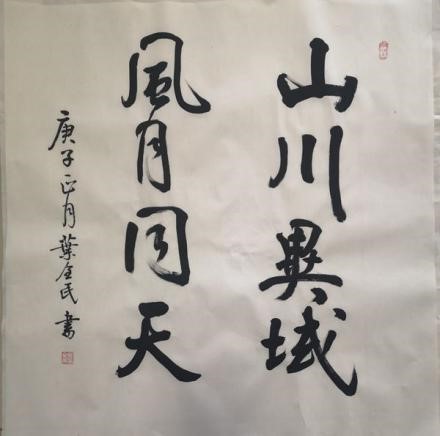 山川異域
風月同天
庚子正月葉金民書